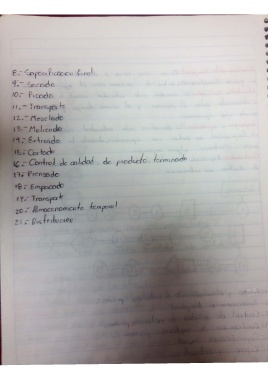 8.- Saponificacion final
9.- Secado
10.- Picado
11.- Transporte
12.- Mezclado
13.- Molienda
14.- Extruido
15.- Cortado
16.- Control de calidad de producto terminado
17.- Prensado
18.- Empacado
19.- Transporte
20.- Almacenamiento temporal
21.- Distribucion